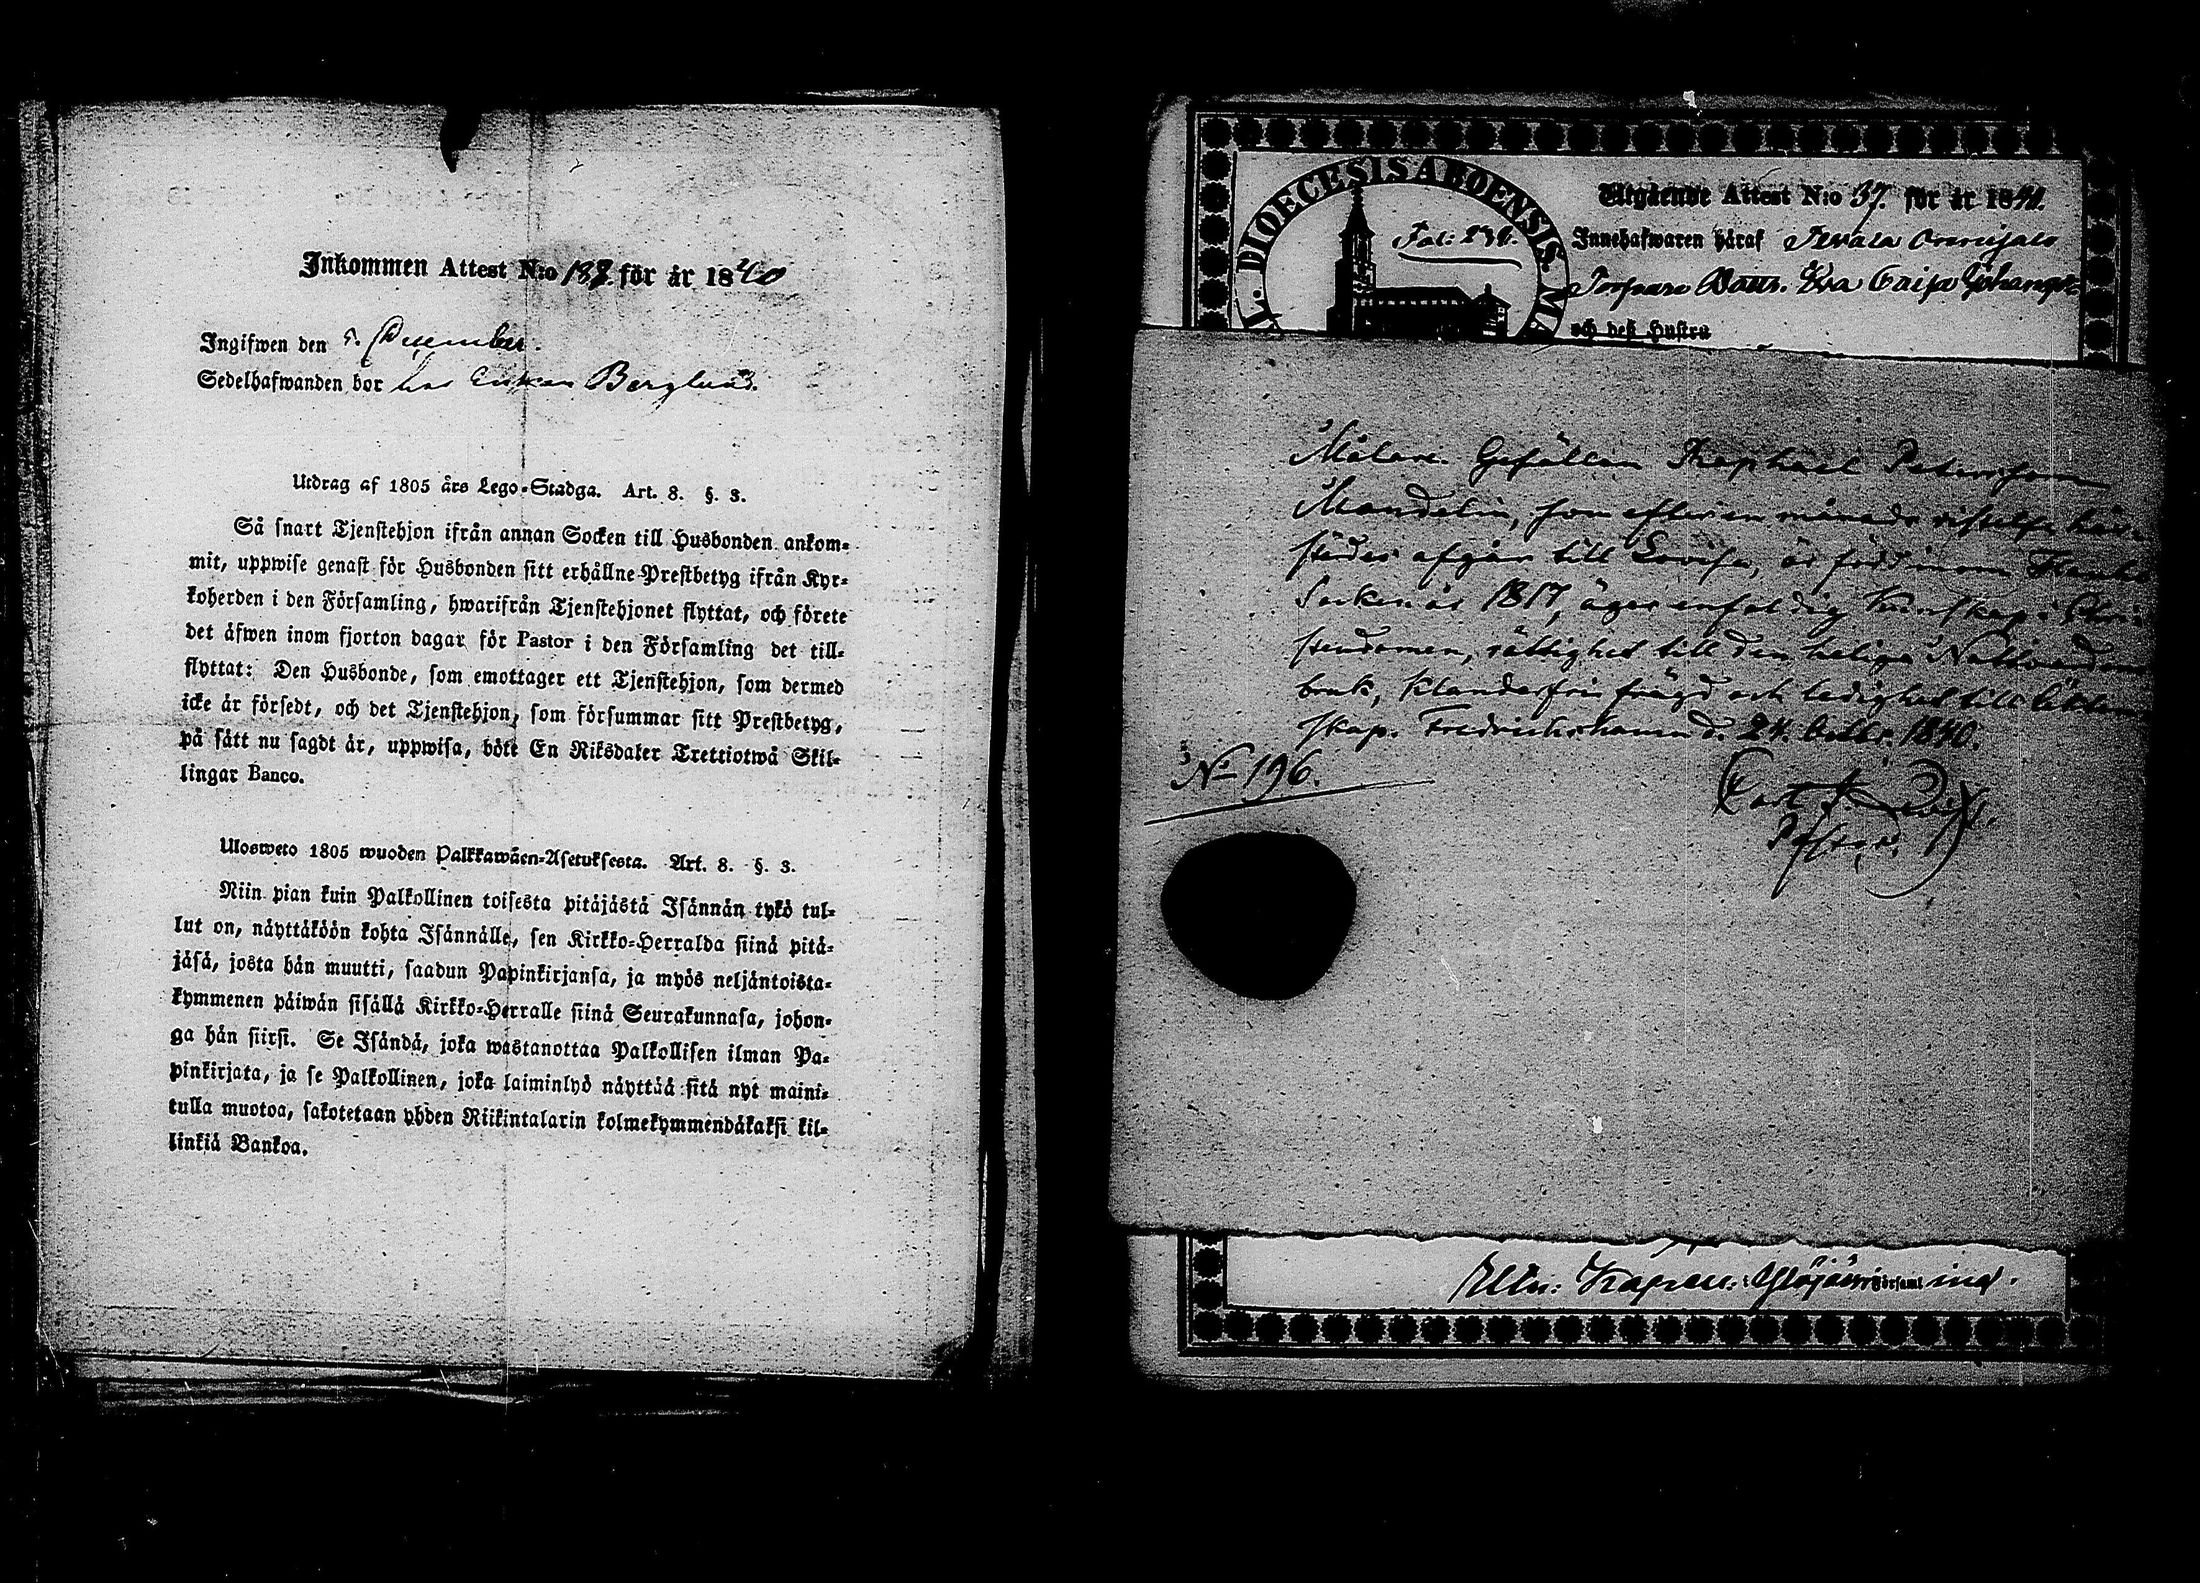 Inkommen Attest N:o 188. för år 1840
Ingifwen den 5. December.
Sedelhafwanden bor hos Enkan Berglund.
Utdrag af 1805 års Lego-Stadga. Art. 8. §. 3.
Så snart Tjenstehjon ifrån annan Socken till Husbonden ankom-
mit, uppwise genast för Husbonden sitt erhållne Prestbetyg ifrån Kyr-
koherden i den Församling, hwarifrån Tjenstehjonet flyttat, och förete
det äfwen inom fjorton dagar för Pastor i den Församling det till-
flyttat: Den Husbonde, som emottager ett Tjenstehjon, som dermed
icke är försedt, och det Tjenstehjon, som försummar sitt Prestbetyg,
på sätt nu sagdt är, uppwisa, böte En Riksdaler Trettiotwå Skil-
lingar Banco.
Ulosweto 1805 wuoden Palkkawäen-Asetuksesta. Art. 8. §. 3.
Niin pian kuin Palkollinen toisesta pitäjästä Isännän tykö tul-
lut on, näyttäköön kohta Isännälle, sen Kirkko-Herralda siinä pitä-
jäsä, josta hän muutti, saadun Papinkirjansa, ja myös neljäntoista-
kymmenen päiwän sisällä Kirkko-Herralle siinä Seurakunnasa, johon-
ga hän siirsi. Se Isändä, joka wastanottaa Palkollisen ilman Pa-
pinkirjata, ja se Palkollinen, joka laiminlyö näyttää sitä nyt maini-
tulla muotoa, sakotetaan yhden Riikintalarin kolmekymmendäkaksi kil-
linkiä Bankoa.
DIOECESIS ABOENSIS. MA
Fol: 236.
Utgående Attest N:o 37. för år 1840.
Innehafwaren häraf
Torpare Dottr. Eva Caisa Johansd:
och deß Hustru
Målare Gesällen Raphael Petersson
Mandelin, som efter en månads vistelse här-
städes afgår till Lovisa, är född inom
Socken år 1817, äger enfaldig kunskap i Chri-
stendomen, rättighet till den heliga Nattvardens
bruk, klanderfri frägd och ledighet till äkten-
skap. Fredrichshamn d. 24. Octbr. 1840.
N:o 196.
Pastor.
Ylöjärvi Församl